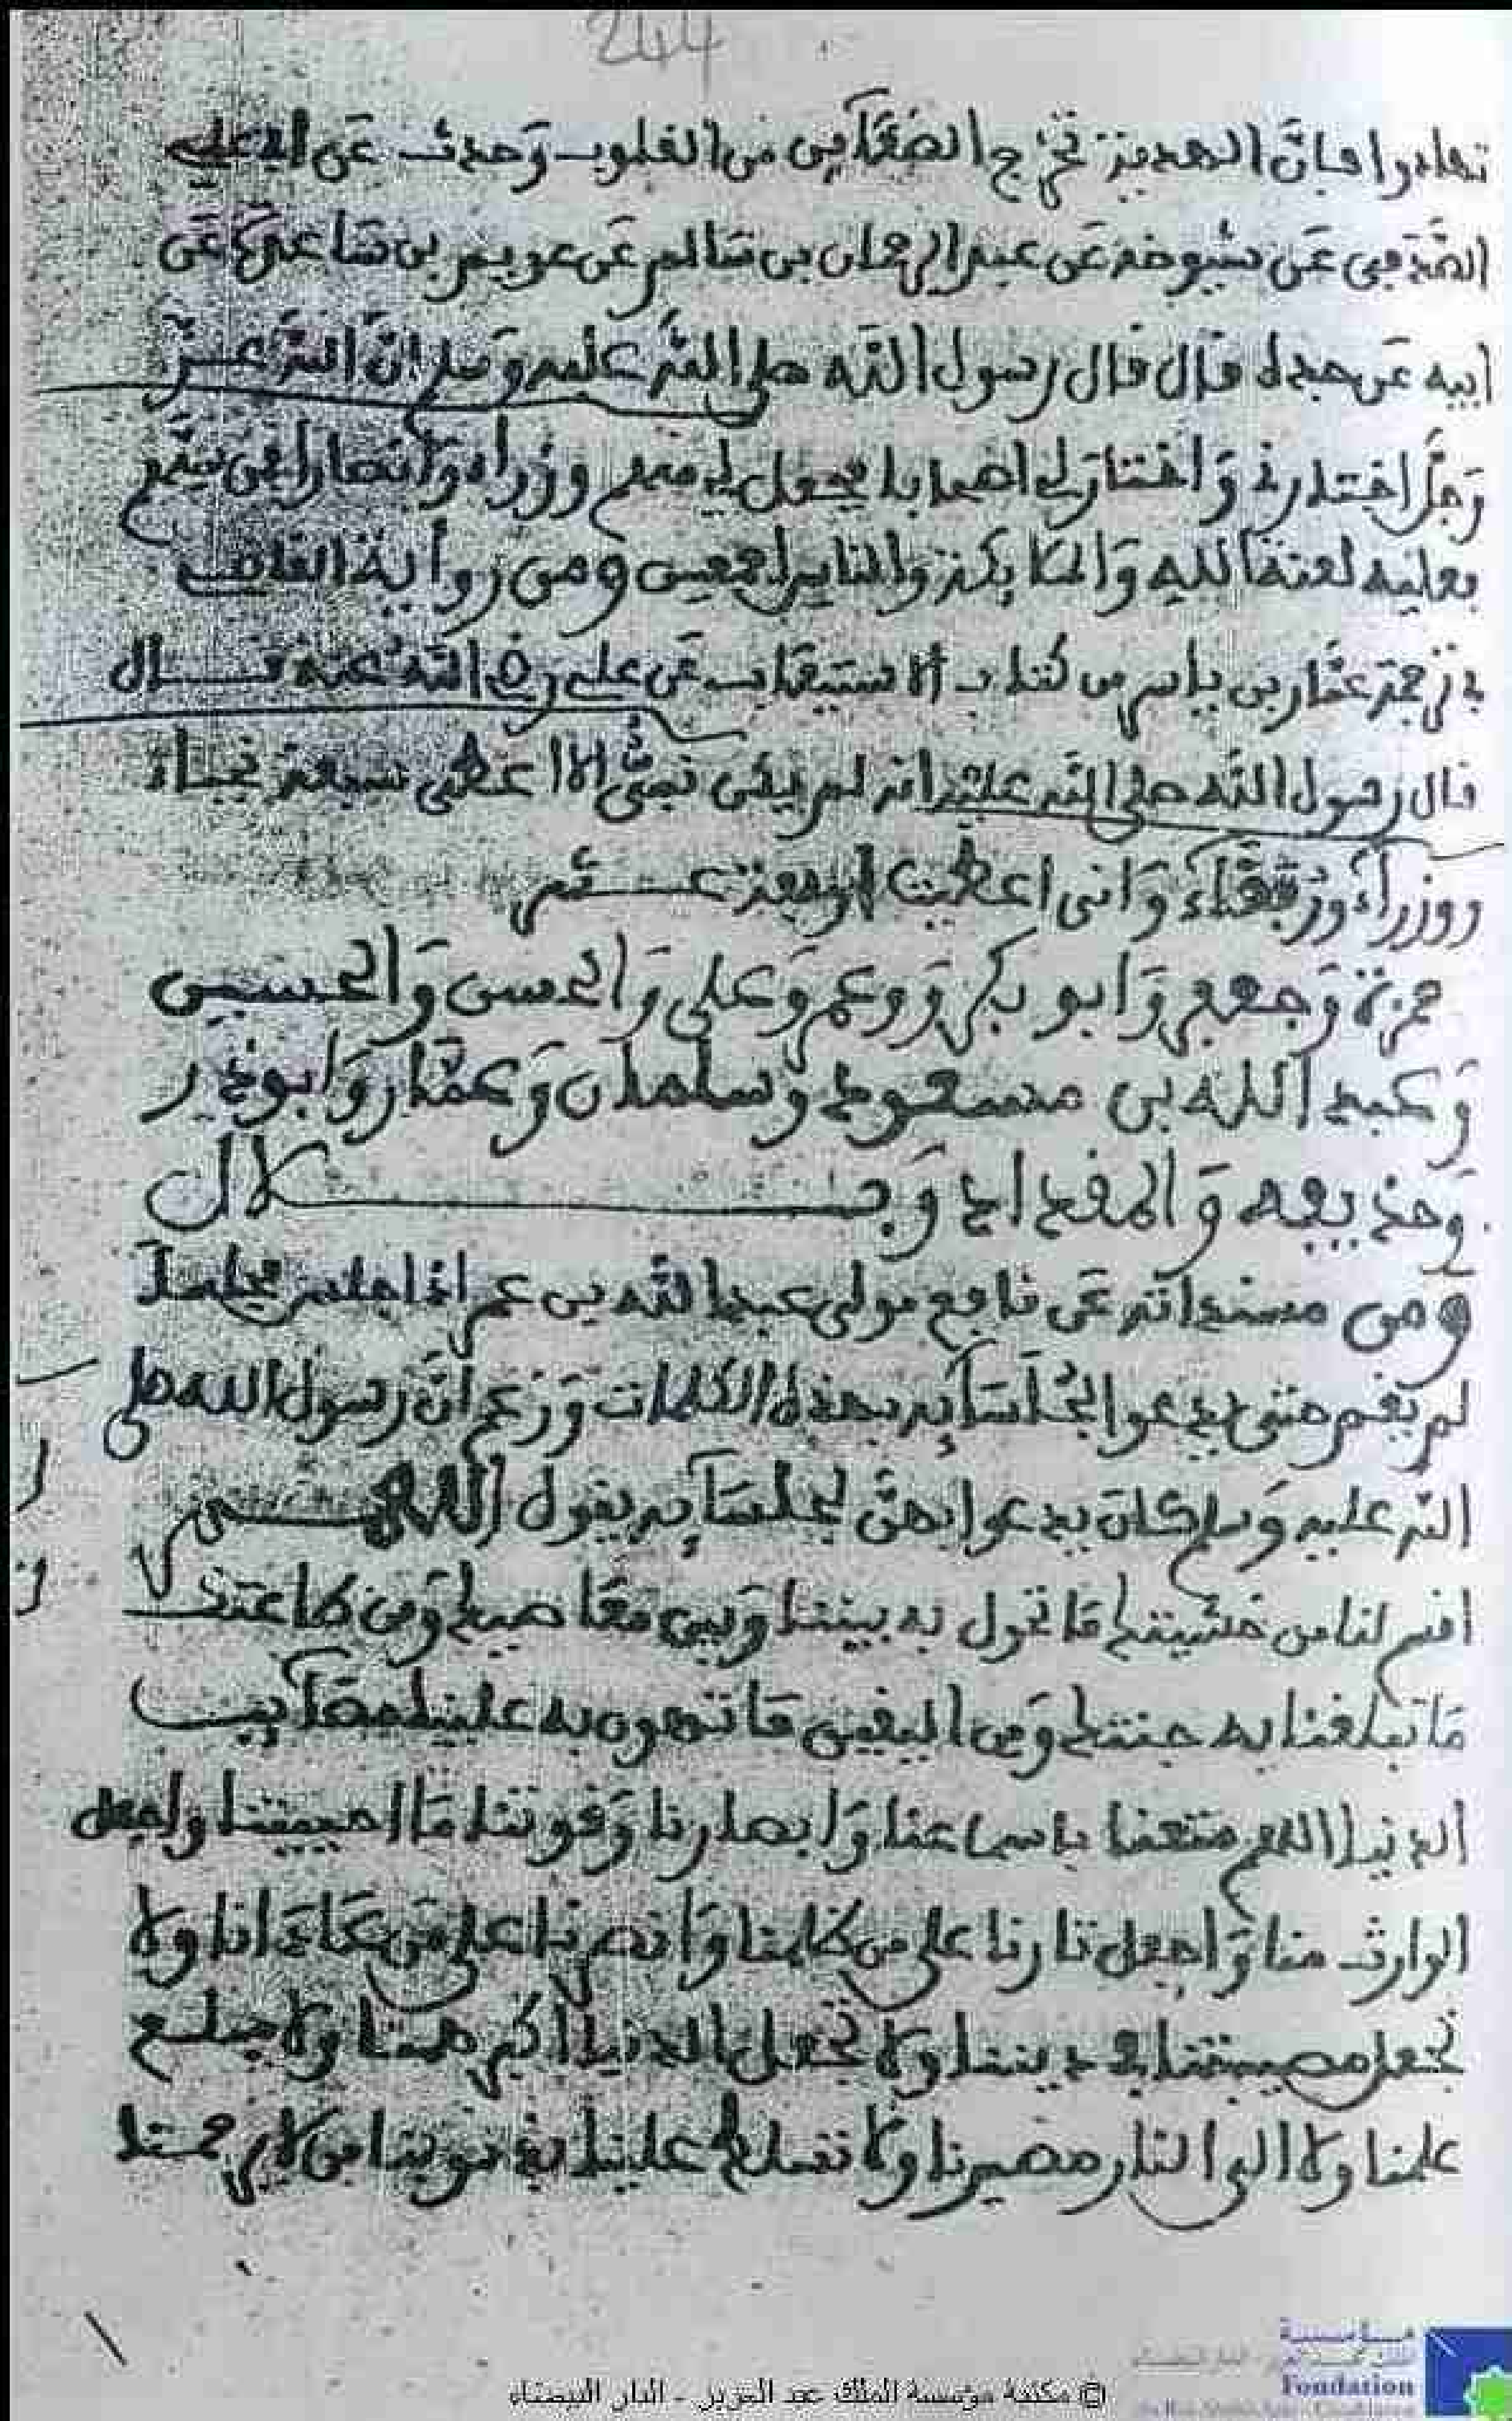 244
تهادوا فإنّ الهدية تخرج الضغآين من القلوب وحدث عن ابي علي
الصدفي عن شيوخه عن عبد الرحمان بن سالم عن عويم بن ساعدة عن
ابيه عن جده قال قال رسول الله صلى الله عليه وسلم انّ الله عزّ
وجلّ اختارني واختار لي اصحابا يجعل لي منهم وزرآء وانصارا فمن سبهم
فعليه لعنة الله والملايكة والناس اجمعين ومن رواية القاضي
في ترجمة عمّار بن ياسر من كتاب الاستيعاب عن علي رضي الله عنه قال
قال رسول الله صلى الله عليه انه لم يكن نبيّ الا اعطي سبعة نجباء
ووزرآء ورفقاء واني اعطيت اربعة عشر
حمزة وجعفر وابو بكر وعمر وعلي والحسن والحسين
وعبد الله بن مسعود وسلمان وعمّار وابو ذر
وحذيفه والمقداد وبلال
ومن مسنداته عن نافع مولى عبد الله بن عمر اذا جلس مجلسا
لم يقم حتى يدعوا لجلسآيه بهذه الكلمات وزعم انّ رسول الله صلى
الله عليه وسلم كان يدعوا بهنّ لجلسآيه يقول اللهم
اقسم لنا من خشيتك ما تحول به بيننا وبين معاصيك ومن طاعتك
ما تبلغنا به جنتك ومن اليقين ما تهون به علينا مصآيب
الدنيا اللهم متعنا باسماعنا وابصارنا وقوتنا ما احييتنا واجعل
الوارث منا واجعل ثارنا على من ظلمنا وانصرنا على من عادانا ولا
تجعل مصيبتنا في ديننا ولا تجعل الدنيا اكبر همنا ولا مبلغ
علمنا ولا الى النار مصيرنا ولا تسلط علينا بذنوبنا من لا يرحمنا
مؤسسة
Foundation
© مكتبة مؤسسة الملك عبد العزيز - الدار البيضاء